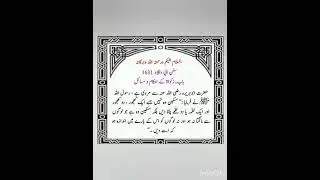 السلام علیکم ورحمۃ اللہ وبرکاتہ
سنن ابی داؤد 1631
باب: زکوٰۃ کے احکام و مسائل
حضرت ابوہریرہ رضی اللہ عنہ سے مروی ہے، رسول اللہ
ﷺ نے فرمایا: "مسکین وہ نہیں جسے ایک کھجور، دو کھجور
اور ایک لقمہ یا دو لقمے پلٹا دیں بلکہ مسکین وہ ہے جو لوگوں
سے مانگتا نہ ہو اور نہ لوگوں کو اس کے بارے میں اندازہ ہو
کہ اسے دیں۔"